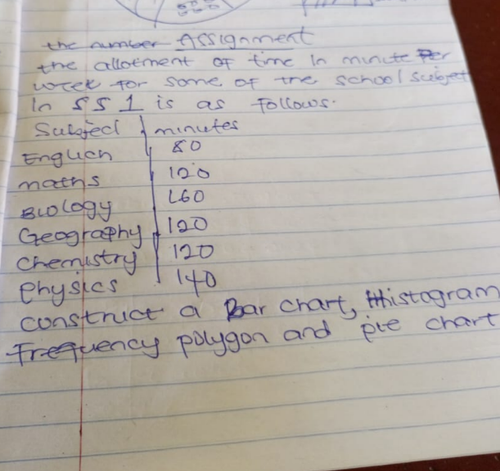 the number Assignment
the allotment of time in minute Per
week for some of the school subject
In SS1 is as follows.
Subject minutes
English 80
maths 120
Biology 160
Geography 120
chemistry 120
physics 140
construct a Bar chart, Histogram
Frequency polygon and pie chart